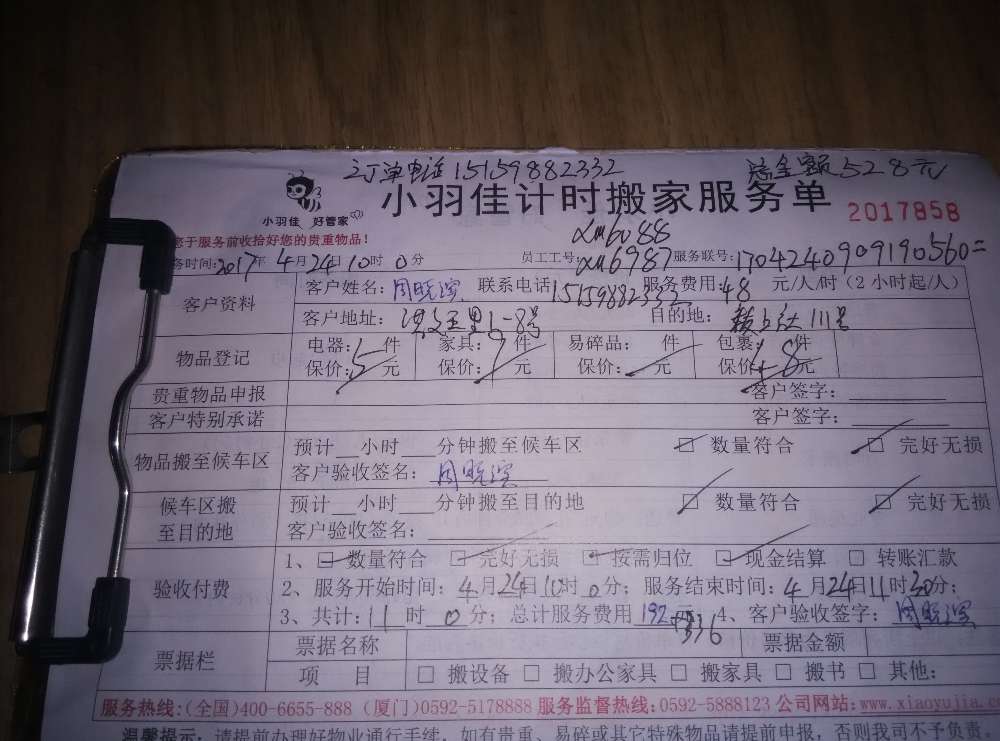 订单电话15159882332 总金额528元
小羽佳 好管家
小羽佳计时搬家服务单
2017858
您于服务前收拾好您的贵重物品!
xm6088
务时间:2017年4月24日10时0分 员工工号:xm6987 服务联号:
客户资料
客户姓名: 联系电话15159882332 服务费用:48元/人/时(2小时起/人)
客户地址: 目的地:
物品登记
电器:5件 家具:7件 易碎品: 件 包裹: 件
保价: 元 保价: 元 保价: 元 保价: 元
贵重物品申报 客户签字:
客户特别承诺 客户签字:
物品搬至候车区
预计__小时__分钟搬至候车区 □ 数量符合 □ 完好无损
客户验收签名:
候车区搬
至目的地
预计__小时__分钟搬至目的地 □ 数量符合 □ 完好无损
客户验收签名:
验收付费
1、□ 数量符合 □ 完好无损 □ 按需归位 □ 现金结算 □ 转账汇款
2、服务开始时间:4月24日10时0分;服务结束时间:4月24日11时30分;
3、共计: 时0分;总计服务费用192元;4、客户验收签字:
+336
票据栏
票据名称 票据金额
项 目 □ 搬设备 □ 搬办公家具 □ 搬家具 □ 搬书 □ 其他:
服务热线:(全国)400-6655-888 (厦门)0592-5178888 服务监督热线:0592-5888123 公司网站:www.xiaoyujia.c
温馨提示:请提前办理好物业通行手续,如有贵重、易碎或其它特殊物品请提前申报,否则我司不予负责。